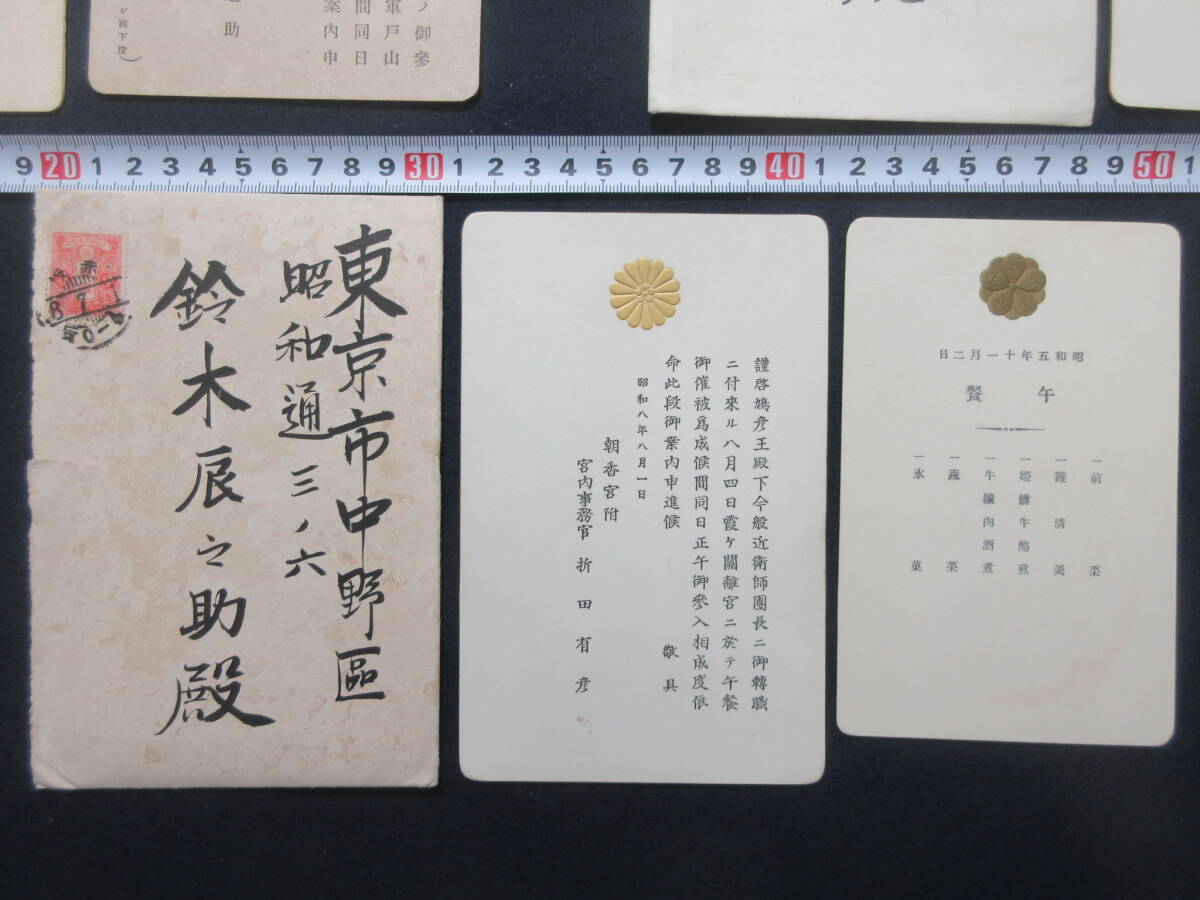 ノ御參
軍戸山
間同日
案内申
助
シ被下度)
9 20 1 2 3 4 5 6 7 8 9 30 1 2 3 4 5 6 7 8 9 40 1 2 3 4 5 6 7 8 9 50 1
東京市中野區
昭和通三ノ六
鈴木辰之助殿
謹啓鳩彦王殿下今般近衛師團長ニ御轉職
ニ付來ル八月四日霞ケ關離宮ニ於テ午餐
御催被爲成候間同日正午御參入相成度依
命此段御案内申進候
敬具
昭和八年八月一日
朝香宮附
宮内事務官 折田有彦
昭和五年十一月二日
午餐
一前菜
一鷄淸羹
一姫鱒牛酪煎
一牛纖肉酒煮
一蔬菜
一氷菓